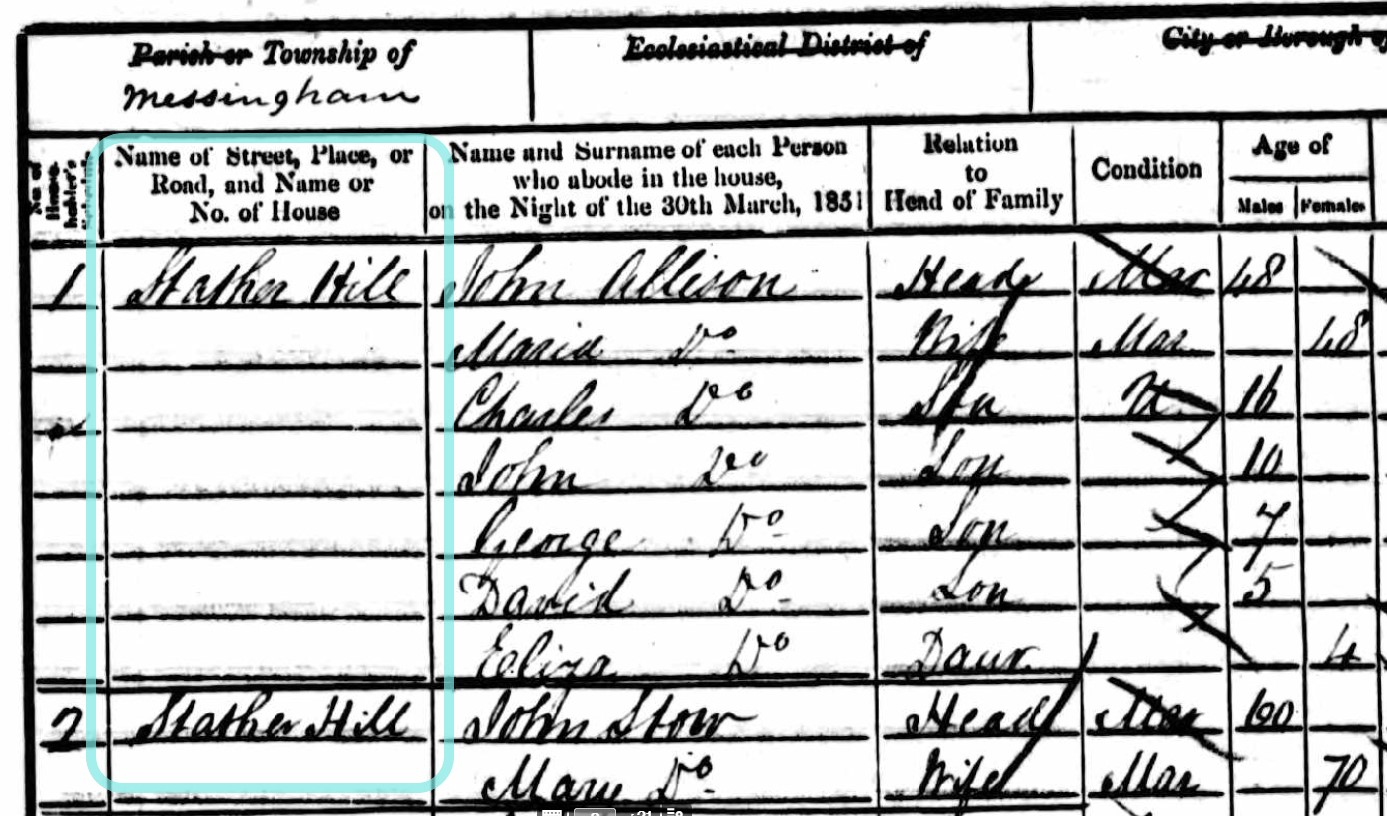 Parish or Township of
Ecclesiastical District of
City or Borough of
Messingham
No. of House-holder's Schedule
Name of Street, Place, or Road, and Name or No. of House
Name and Surname of each Person who abode in the house, on the Night of the 30th March, 1851
Relation to Head of Family
Condition
Age of
Males Females
1 Stather Hill John Allison Head Mar 48
Maria Do Wife Mar 48
Charles Do Son U 16
John Do Son 10
George Do Son 7
David Do Son 5
Eliza Do Daur 4
2 Stather Hill John Stow Head Mar 60
Mary Do Wife Mar 70